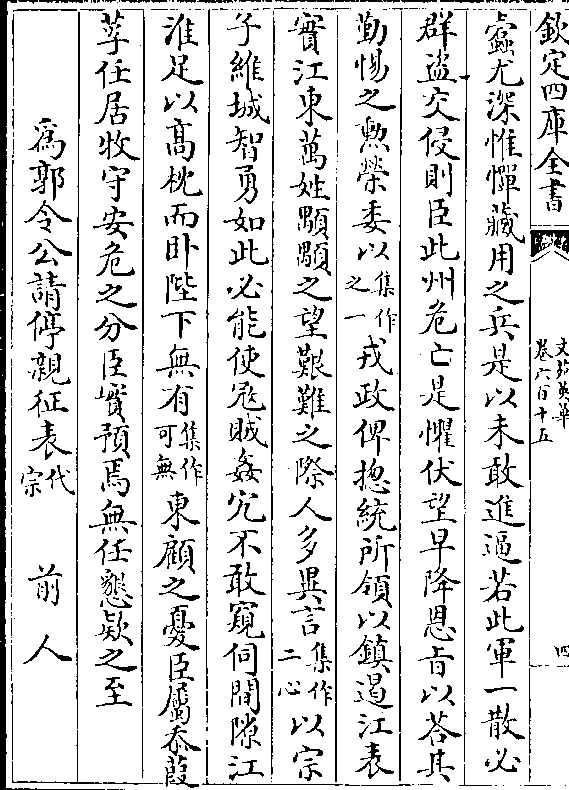 欽定四庫全書
文苑英華
卷六百十五
四
蠆尤深惟憚藏用之兵是以未敢進逼若此軍一散必
群盗交侵則臣此州危亡是懼伏望早降恩㫖以荅其
勤惕之勲榮委以集作之一戎政俾揔統所領以鎮遏江表
實江東萬姓顒顒之望艱難之際人多異言集作二心以宗
子維城智勇如此必能使冦賊姦宄不敢窺伺間隙江
淮足以髙枕而卧陛下無有集作可無東顧之憂臣屬忝葭
莩任居牧守安危之分臣實預焉無任懇欵之至
為郭令公請停親征表代宗
前人